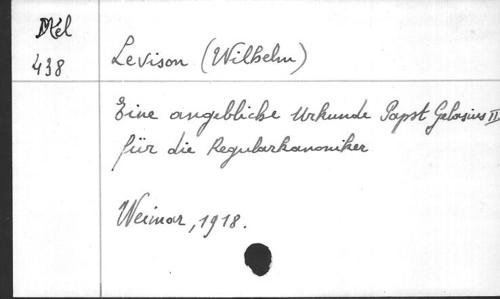 Mél
438
Levison (Wilhelm)
Eine angebliche Urkunde Papst Gelasius II
für die Regularkanoniker
Weimar, 1918.